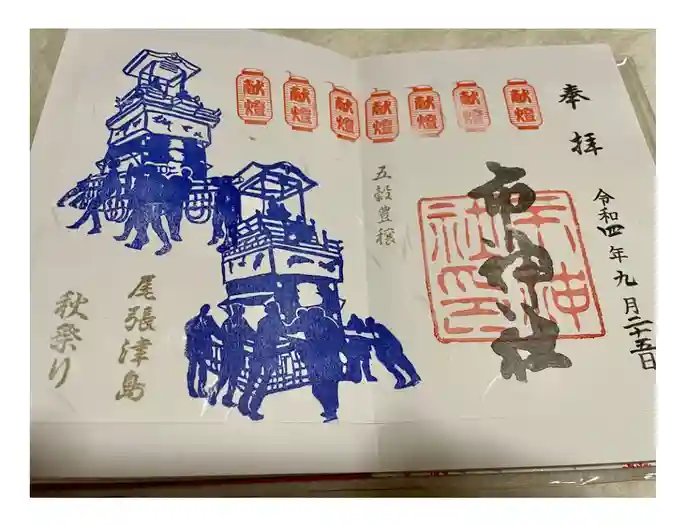 奉拝
令和四年九月二十五日
市神社
市神社印
五穀豊穣
献燈
献燈
献燈
献燈
献燈
献燈
献燈
尾張津島
秋祭り